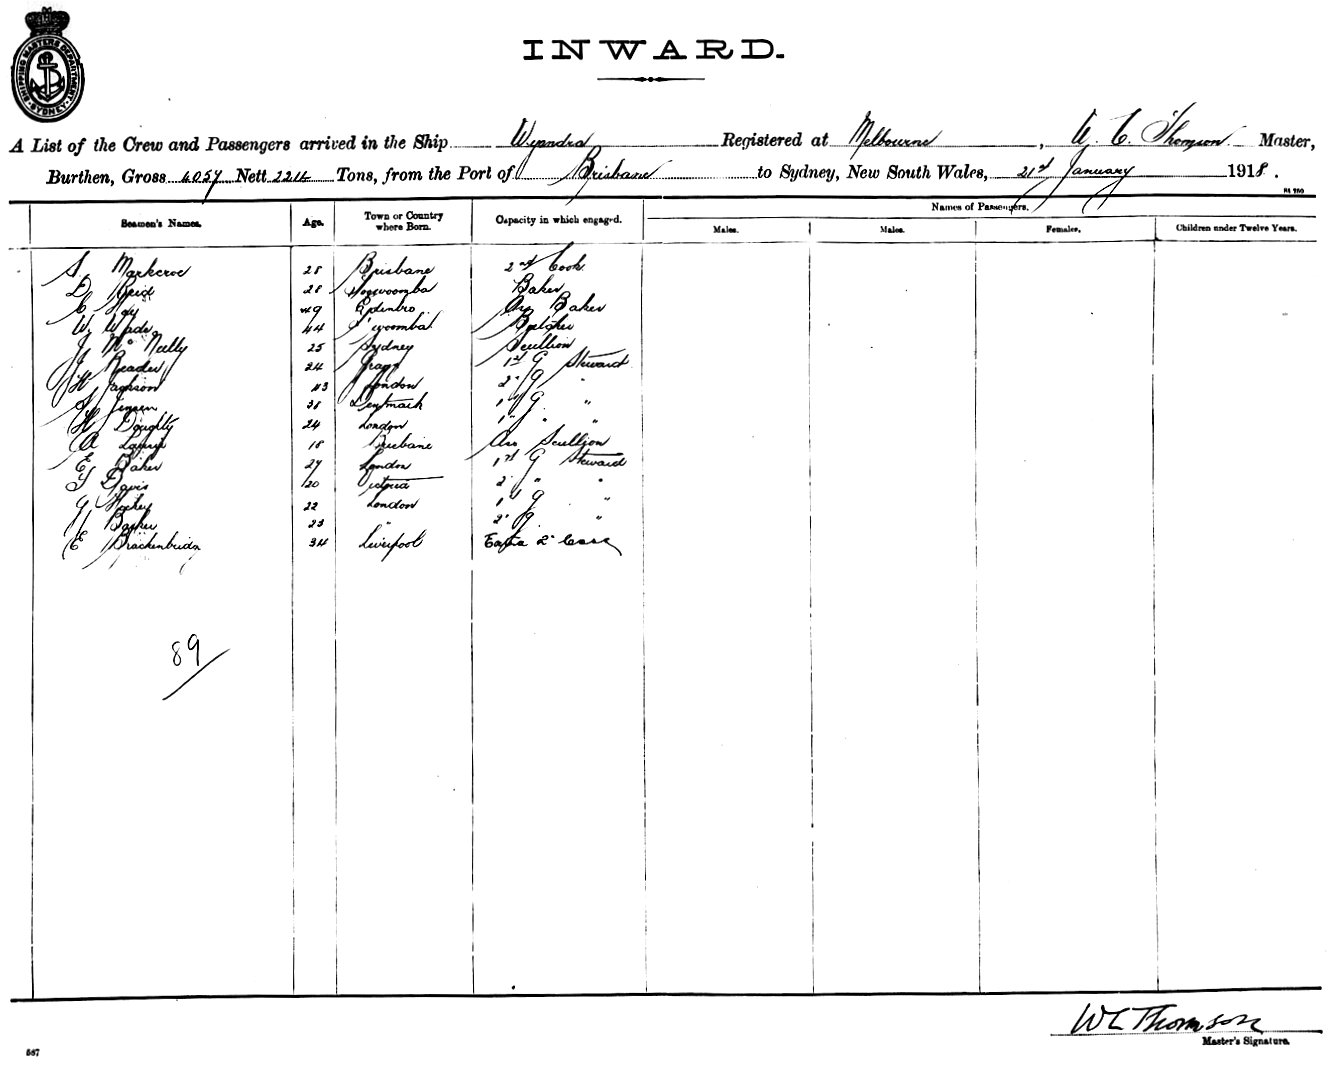 SHIPPING MASTERS DEPARTMENT SYDNEY
INWARD.
A List of the Crew and Passengers arrived in the Ship Wyandra Registered at Melbourne, W. C. Thomson Master,
Burthen, Gross 4057 Nett 2214 Tons, from the Port of Brisbane to Sydney, New South Wales, 21st January 1918.
Names of Passengers.
Seamen's Names. Age. Town or Country where Born. Capacity in which engaged. Males. Males. Females. Children under Twelve Years.
S. 28 Brisbane 2nd Cook
D Reid 28 Toowoomba Baker
C Hay Edinbro Baker
W. Wade 44 T'woomba Butcher
J McNally 25 Sydney Scullion
J Reader 24 Grays 1st G Steward
H Jackson 43 London 2" G "
S Jensen 38 Denmark 1" G "
H Doughty 24 London 1" " "
A 18 Brisbane Scullion
E Baker 27 London 1st G Steward
T Davis 20 Victoria 2 " "
G 22 London 1st G "
J Barker 23 " 2" G "
E 34 Liverpool Extra 2"
89
WC Thomson
Master's Signature.
587